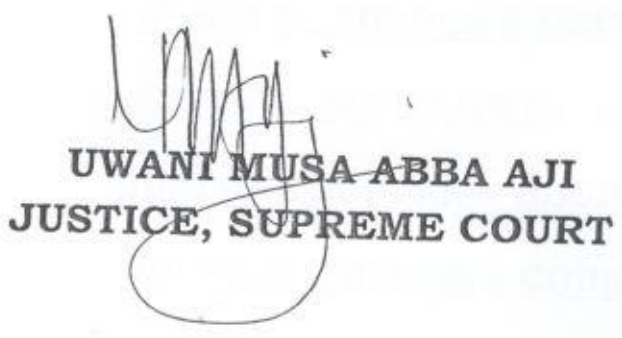 UWANI MUSA ABBA AJI
JUSTICE, SUPREME COURT